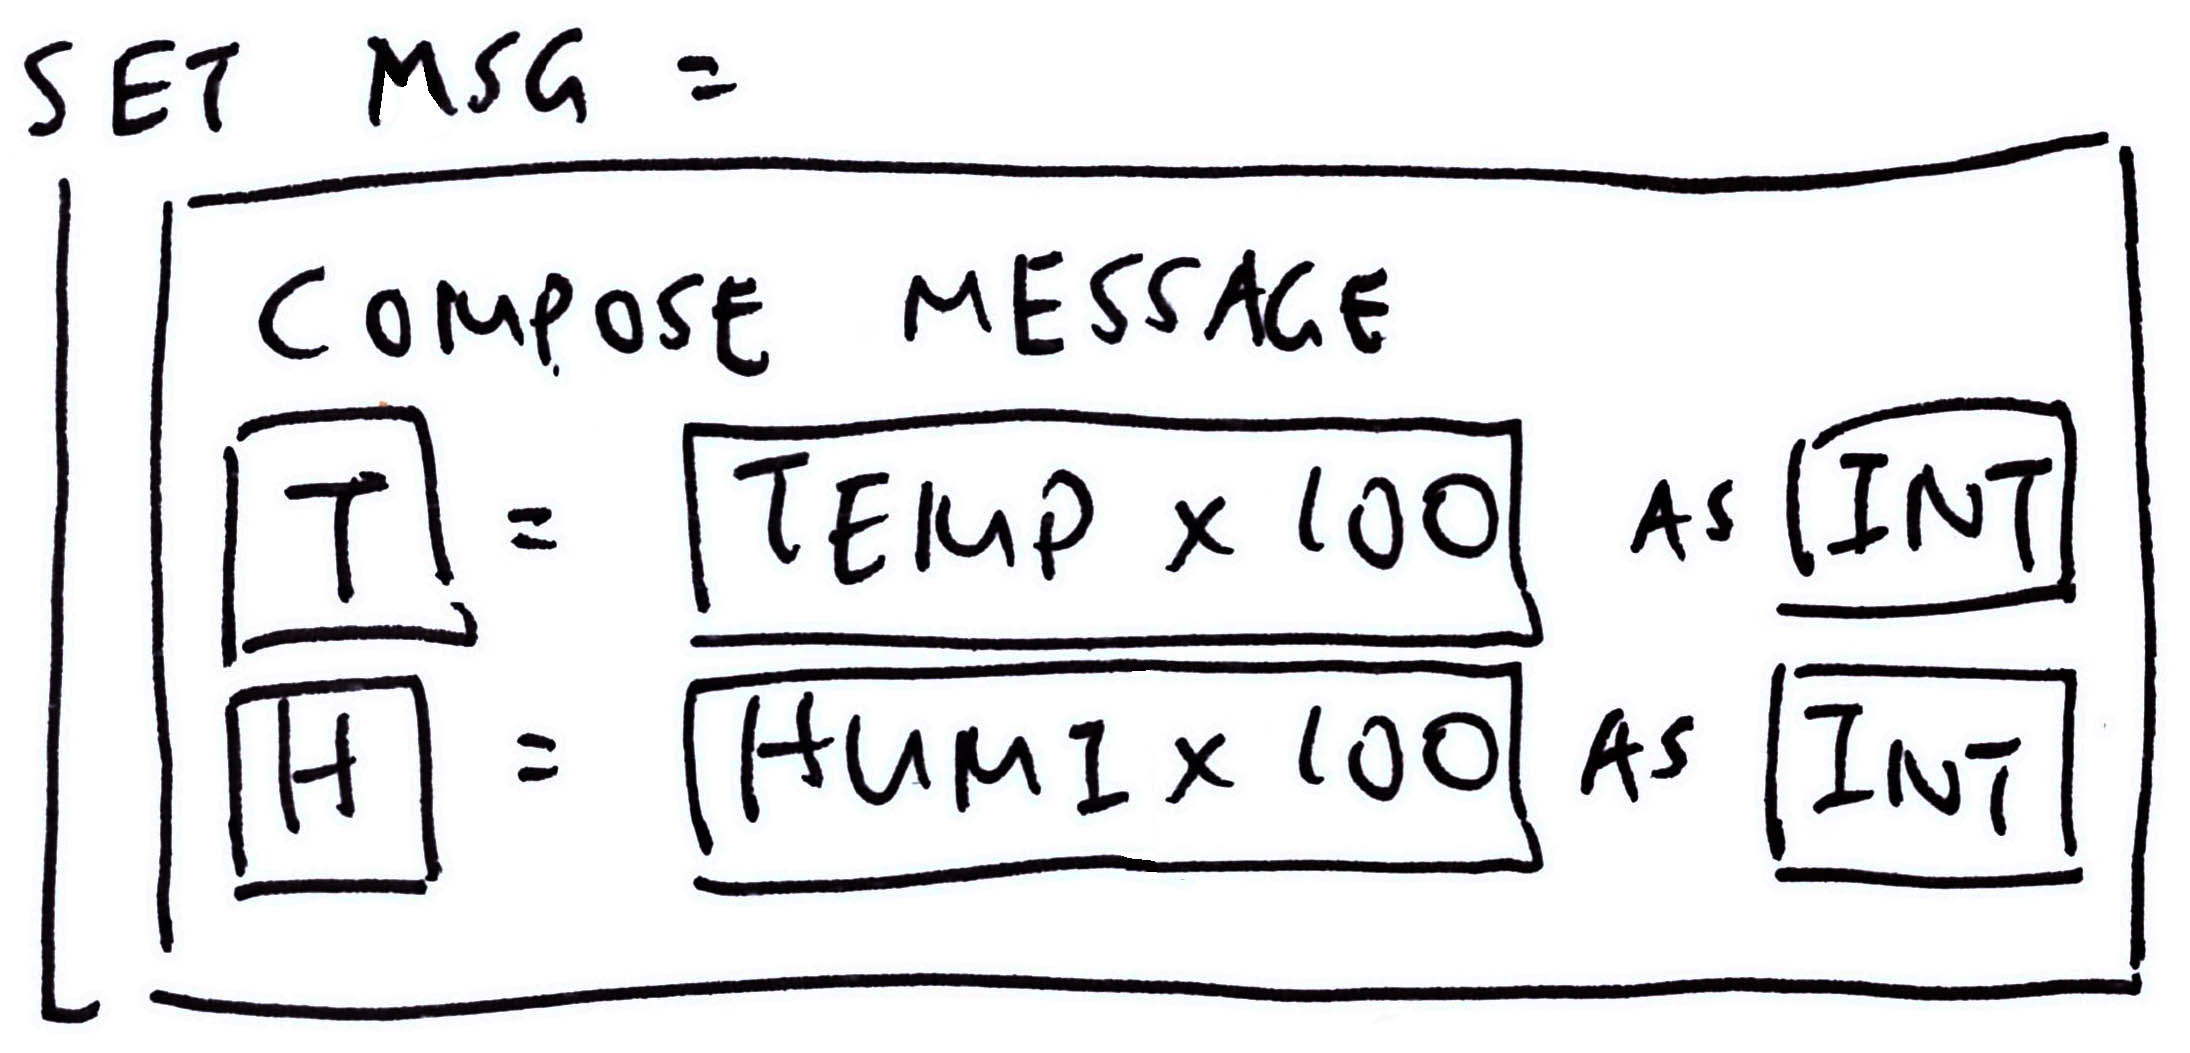 SET MSG =
COMPOSE MESSAGE
T = TEMP x 100 AS INT
H = HUMI x 100 AS INT